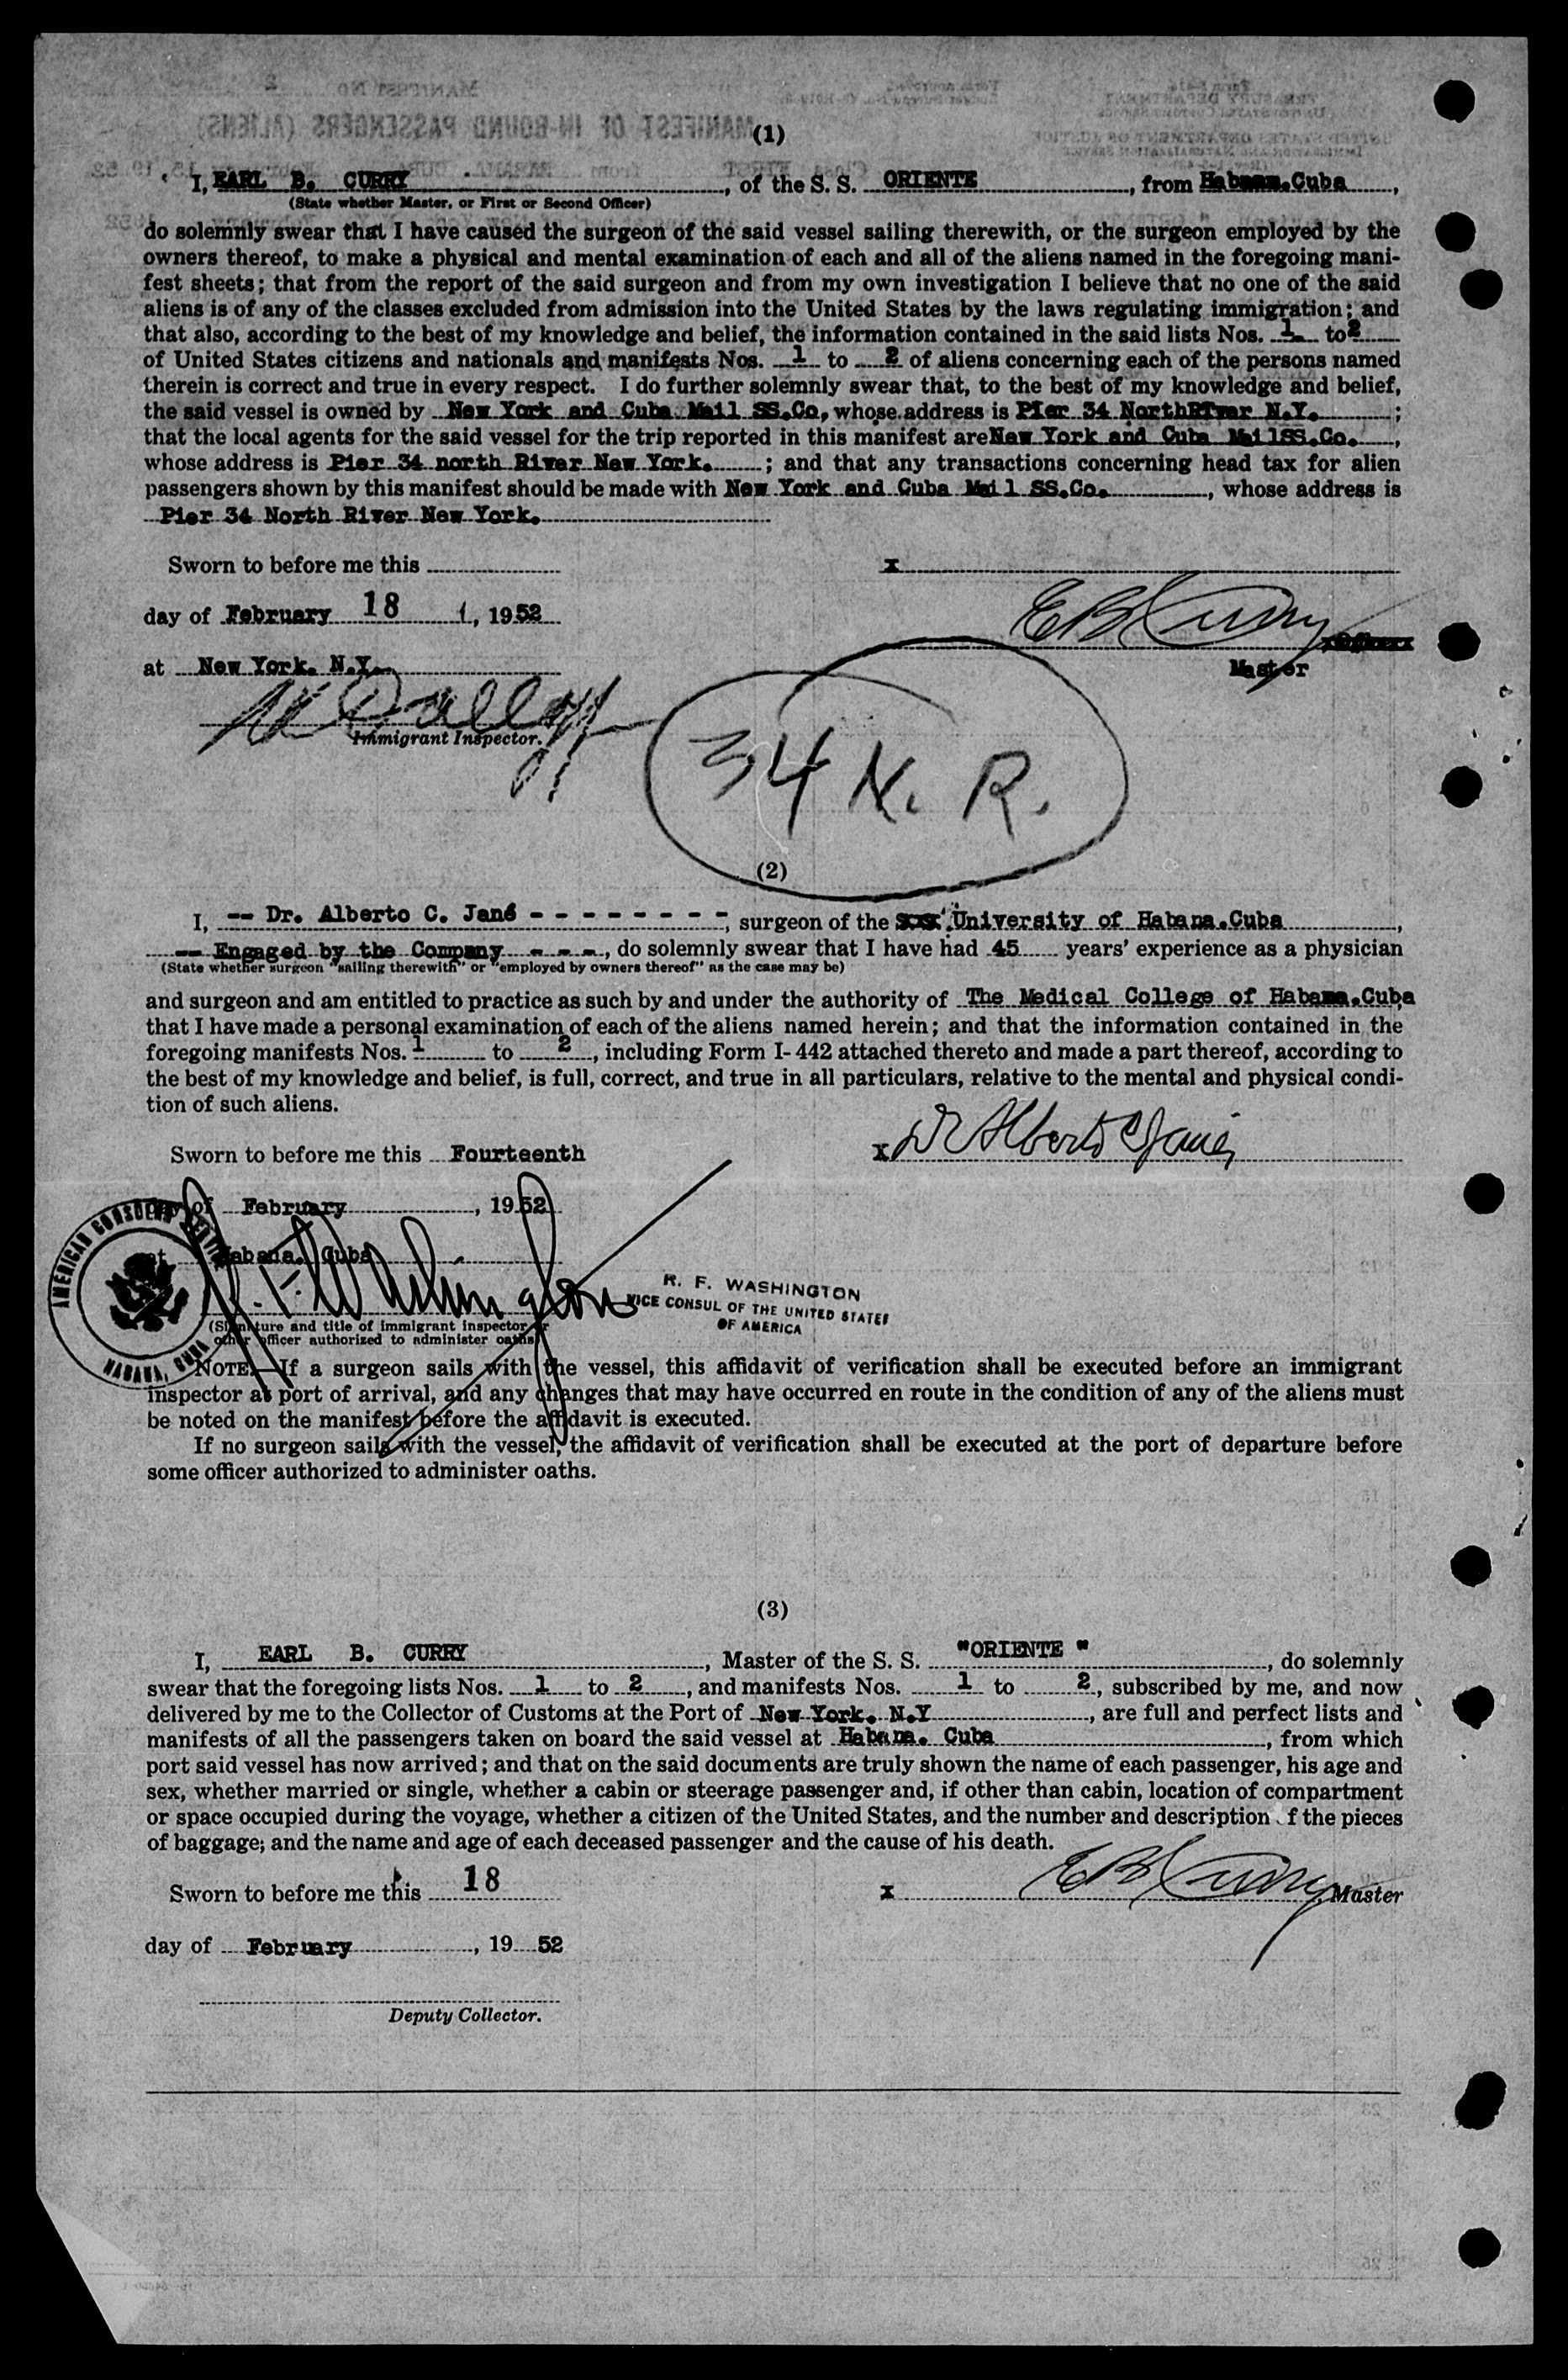 (1)
I, EARL B. CURRY, of the S. S. ORIENTE, from Habana.Cuba,
(State whether Master, or First or Second Officer)
do solemnly swear that I have caused the surgeon of the said vessel sailing therewith, or the surgeon employed by the
owners thereof, to make a physical and mental examination of each and all of the aliens named in the foregoing mani-
fest sheets; that from the report of the said surgeon and from my own investigation I believe that no one of the said
aliens is of any of the classes excluded from admission into the United States by the laws regulating immigration; and
that also, according to the best of my knowledge and belief, the information contained in the said lists Nos. 1 to 2
of United States citizens and nationals and manifests Nos. 1 to 2 of aliens concerning each of the persons named
therein is correct and true in every respect. I do further solemnly swear that, to the best of my knowledge and belief,
the said vessel is owned by New York and Cuba Mail SS.Co, whose address is Pier 34 NorthRiver N.Y. ;
that the local agents for the said vessel for the trip reported in this manifest are New York and Cuba MailSS.Co. ,
whose address is Pier 34 north River New York. ; and that any transactions concerning head tax for alien
passengers shown by this manifest should be made with New York and Cuba Mail SS.Co. , whose address is
Pier 34 North River New York.
Sworn to before me this
x
day of February 18, 1952
E B Curry
at New York. N.Y.
Master
Immigrant Inspector.
34 N. R.
(2)
I, -- Dr. Alberto C. Jané - - - - - - - - -, surgeon of the University of Habana.Cuba ,
-- Engaged by the Company - - - , do solemnly swear that I have had 45 years' experience as a physician
(State whether surgeon "sailing therewith" or "employed by owners thereof" as the case may be)
and surgeon and am entitled to practice as such by and under the authority of The Medical College of Habana.Cuba
that I have made a personal examination of each of the aliens named herein; and that the information contained in the
foregoing manifests Nos. 1 to 2, including Form I-442 attached thereto and made a part thereof, according to
the best of my knowledge and belief, is full, correct, and true in all particulars, relative to the mental and physical condi-
tion of such aliens.
Sworn to before me this Fourteenth
x Dr Alberto C Jané
day of February , 1952
at Habana. Cuba
AMERICAN CONSULAR SERVICE
HABANA, CUBA
R. F. Washington
R. F. WASHINGTON
VICE CONSUL OF THE UNITED STATES
OF AMERICA
(Signature and title of immigrant inspector or
other officer authorized to administer oaths)
NOTE.—If a surgeon sails with the vessel, this affidavit of verification shall be executed before an immigrant
inspector at port of arrival, and any changes that may have occurred en route in the condition of any of the aliens must
be noted on the manifest before the affidavit is executed.
If no surgeon sails with the vessel, the affidavit of verification shall be executed at the port of departure before
some officer authorized to administer oaths.
(3)
I, EARL B. CURRY , Master of the S. S. "ORIENTE " , do solemnly
swear that the foregoing lists Nos. 1 to 2 , and manifests Nos. 1 to 2, subscribed by me, and now
delivered by me to the Collector of Customs at the Port of New York. N.Y , are full and perfect lists and
manifests of all the passengers taken on board the said vessel at Habana. Cuba , from which
port said vessel has now arrived; and that on the said documents are truly shown the name of each passenger, his age and
sex, whether married or single, whether a cabin or steerage passenger and, if other than cabin, location of compartment
or space occupied during the voyage, whether a citizen of the United States, and the number and description of the pieces
of baggage; and the name and age of each deceased passenger and the cause of his death.
Sworn to before me this 18
x E B Curry, Master
day of February , 19 52
Deputy Collector.